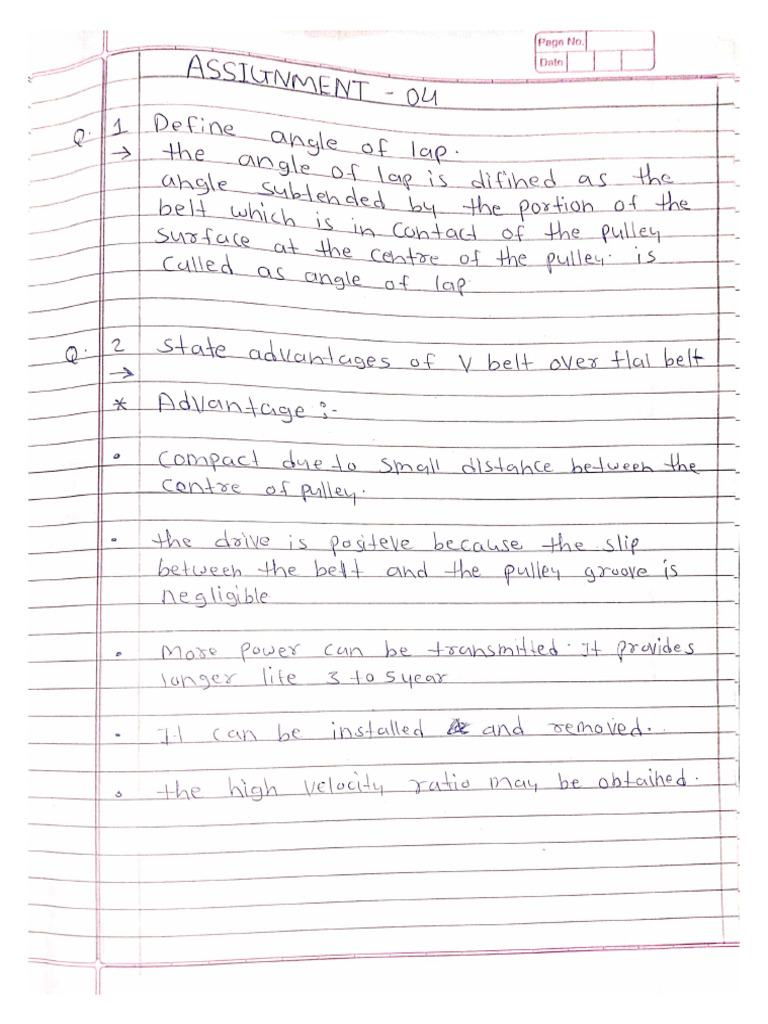 Page No.
Date
ASSIGNMENT - 04
Q. 1 Define angle of lap.
→ the angle of lap is difined as the
angle subtended by the portion of the
belt which is in contact of the pulley
surface at the centre of the pulley. is
called as angle of lap
Q. 2 State advantages of V belt over flat belt
→
* Advantage :-
• Compact due to small distance between the
centre of pulley.
• the drive is positeve because the slip
between the belt and the pulley groove is
negligible
• More power can be transmitted. It provides
longer life 3 to 5 year
• It can be installed and removed.
• the high velocity ratio may be obtained.